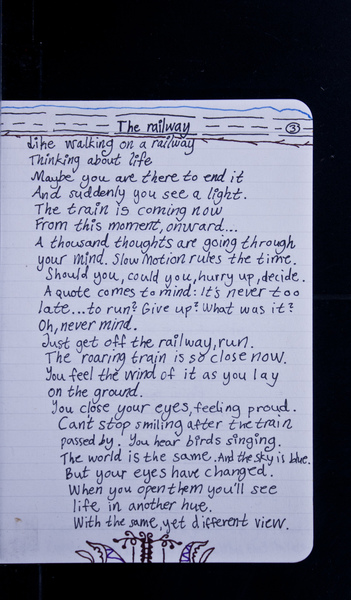 The railway
3
Like walking on a railway
Thinking about life
Maybe you are there to end it
And suddenly you see a light.
The train is coming now
From this moment, onward...
A thousand thoughts are going through
your mind. Slow motion rules the time.
Should you, could you, hurry up, decide.
A quote comes to mind: It's never too
late... to run? Give up? What was it?
Oh, never mind.
Just get off the railway, run.
The roaring train is so close now.
You feel the wind of it as you lay
on the ground.
You close your eyes, feeling proud.
Can't stop smiling after the train
passed by. You hear birds singing.
The world is the same. And the sky is blue.
But your eyes have changed.
When you open them you'll see
life in another hue.
With the same, yet different view.